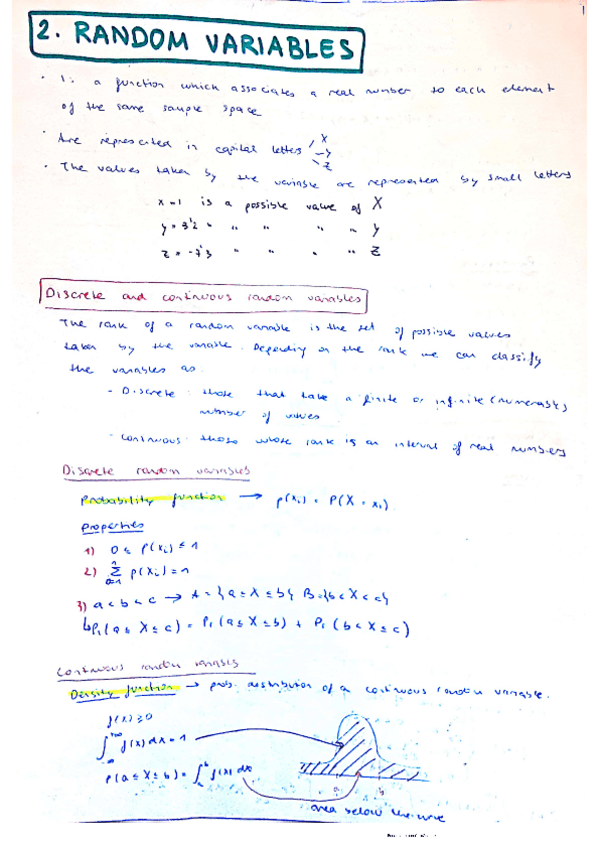 2. RANDOM VARIABLES
· Is a function which associates a real number to each element
of the same sample space
· Are represented in capital letters X
Y
Z
· The values taken by the variable are represented by small letters
x = 1 is a possible value of X
y = 3'2 " " " " Y
z = -7'3 " " " " Z
Discrete and continuous random variables
The rank of a random variable is the set of possible values
taken by the variable. Depending on the rank we can classify
the variables as:
- Discrete: those that take a finite or infinite (numerable)
number of values
- Continuous: those whose rank is an interval of real numbers
Discrete random variables
Probability function → p(xi) = P(X = xi)
Properties
1) 0 ≤ p(xi) ≤ 1
2) Σ p(xi) = 1
3) a < b < c → A = {a ≤ X ≤ b} B = {b < X < c}
↳ Pr (a ≤ X ≤ c) = Pr (a ≤ X ≤ b) + Pr (b < X ≤ c)
Continuous random variables
Density function → prob. distribution of a continuous random variable.
f(x) ≥ 0
∫ f(x) dx = 1
P(a ≤ X ≤ b) = ∫ f(x) dx
a b
area below the curve